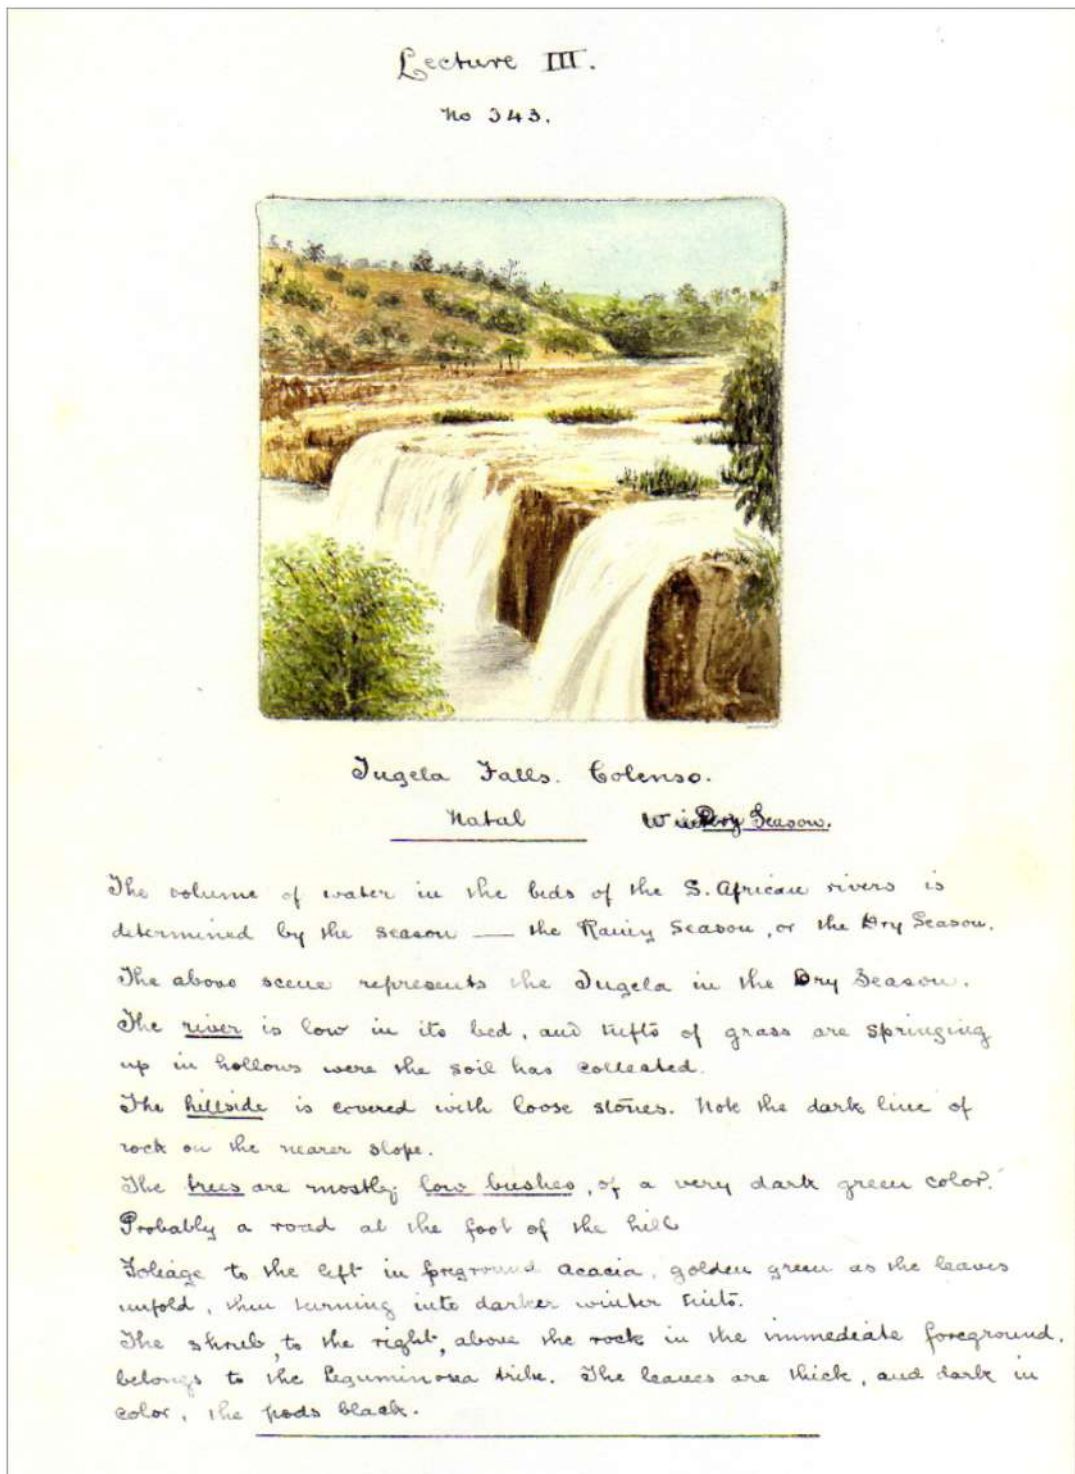 Lecture III.
No 343.
Tugela Falls. Colenso.
Natal Dry Season.
The volume of water in the beds of the S. African rivers is
determined by the season — the Rainy Season, or the Dry Season.
The above scene represents the Tugela in the Dry Season.
The river is low in its bed, and tufts of grass are springing
up in hollows were the soil has collected.
The hillside is covered with loose stones. Note the dark line of
rock on the nearer slope.
The trees are mostly low bushes, of a very dark green color.
Probably a road at the foot of the hill
Foliage to the left in foreground Acacia, golden green as the leaves
unfold, then turning into darker winter tints.
The shrub, to the right, above the rock in the immediate foreground,
belongs to the Leguminosea tribe. The leaves are thick, and dark in
color, the pods black.